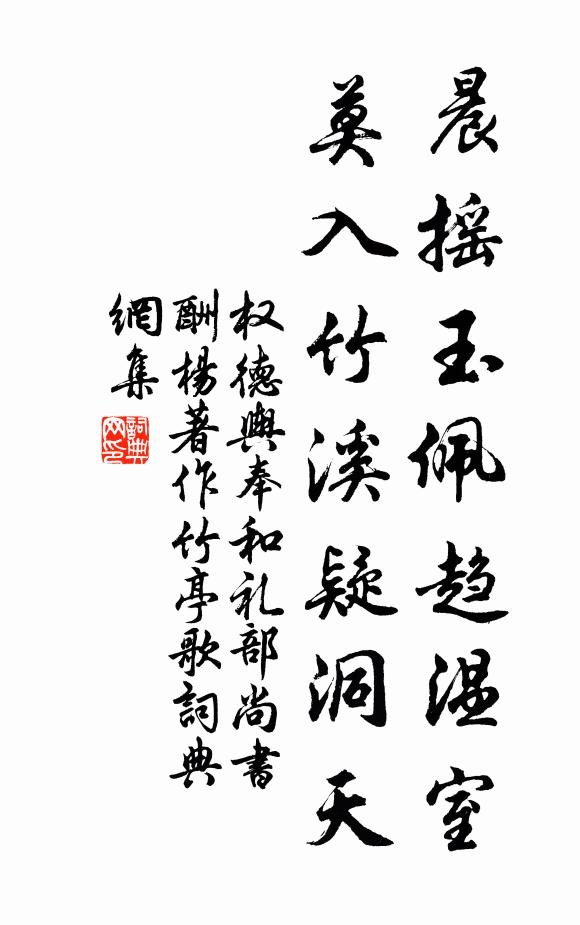 晨摇玉佩趋温室
莫入竹溪疑洞天
权德輿奉和礼部尚書
酬楊著作竹亭歌詞典
網集
詞典
网印